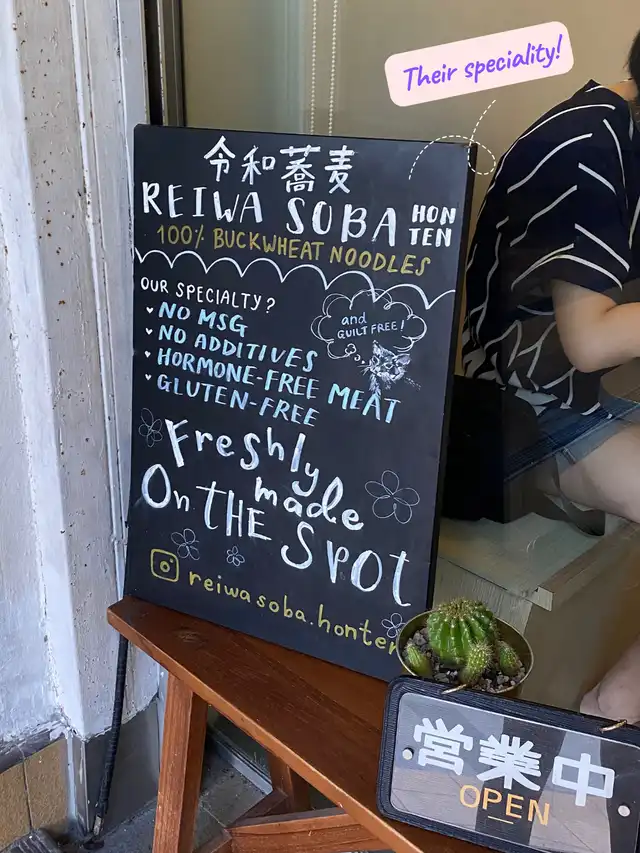 Their speciality!
令和蕎麦
REIWA SOBA HON TEN
100% BUCKWHEAT NOODLES
OUR SPECIALTY?
NO MSG
NO ADDITIVES
HORMONE-FREE MEAT
GLUTEN-FREE
and
GUILT FREE!
Freshly
made
On THE SPOT
reiwasoba.honten
営業中
OPEN